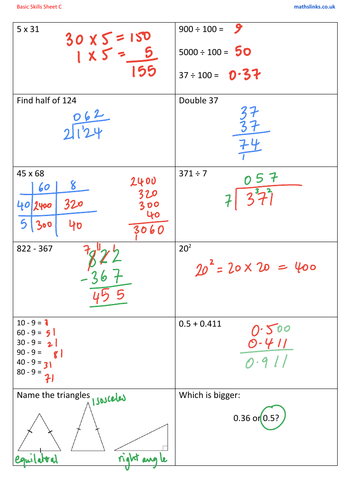 Basic Skills Sheet C
mathslinks.co.uk
5 x 31
30 x 5 = 150
1 x 5 = 5
155
900 ÷ 100 = 9
5000 ÷ 100 = 50
37 ÷ 100 = 0.37
Find half of 124
062
2 1 12 4
Double 37
37
37
74
1
45 x 68
60 8
40 2400 320
5 300 40
2400
320
300
40
3060
1
371 ÷ 7
057
7 3 37 21
822 - 367
7 11 1
822
- 367
455
20²
20² = 20 x 20 = 400
10 - 9 = 1
60 - 9 = 51
30 - 9 = 21
90 - 9 = 81
40 - 9 = 31
80 - 9 = 71
0.5 + 0.411
0.500
0.411
0.911
Name the triangles
isosceles
equilatral
right angle
Which is bigger:
0.36 or 0.5?